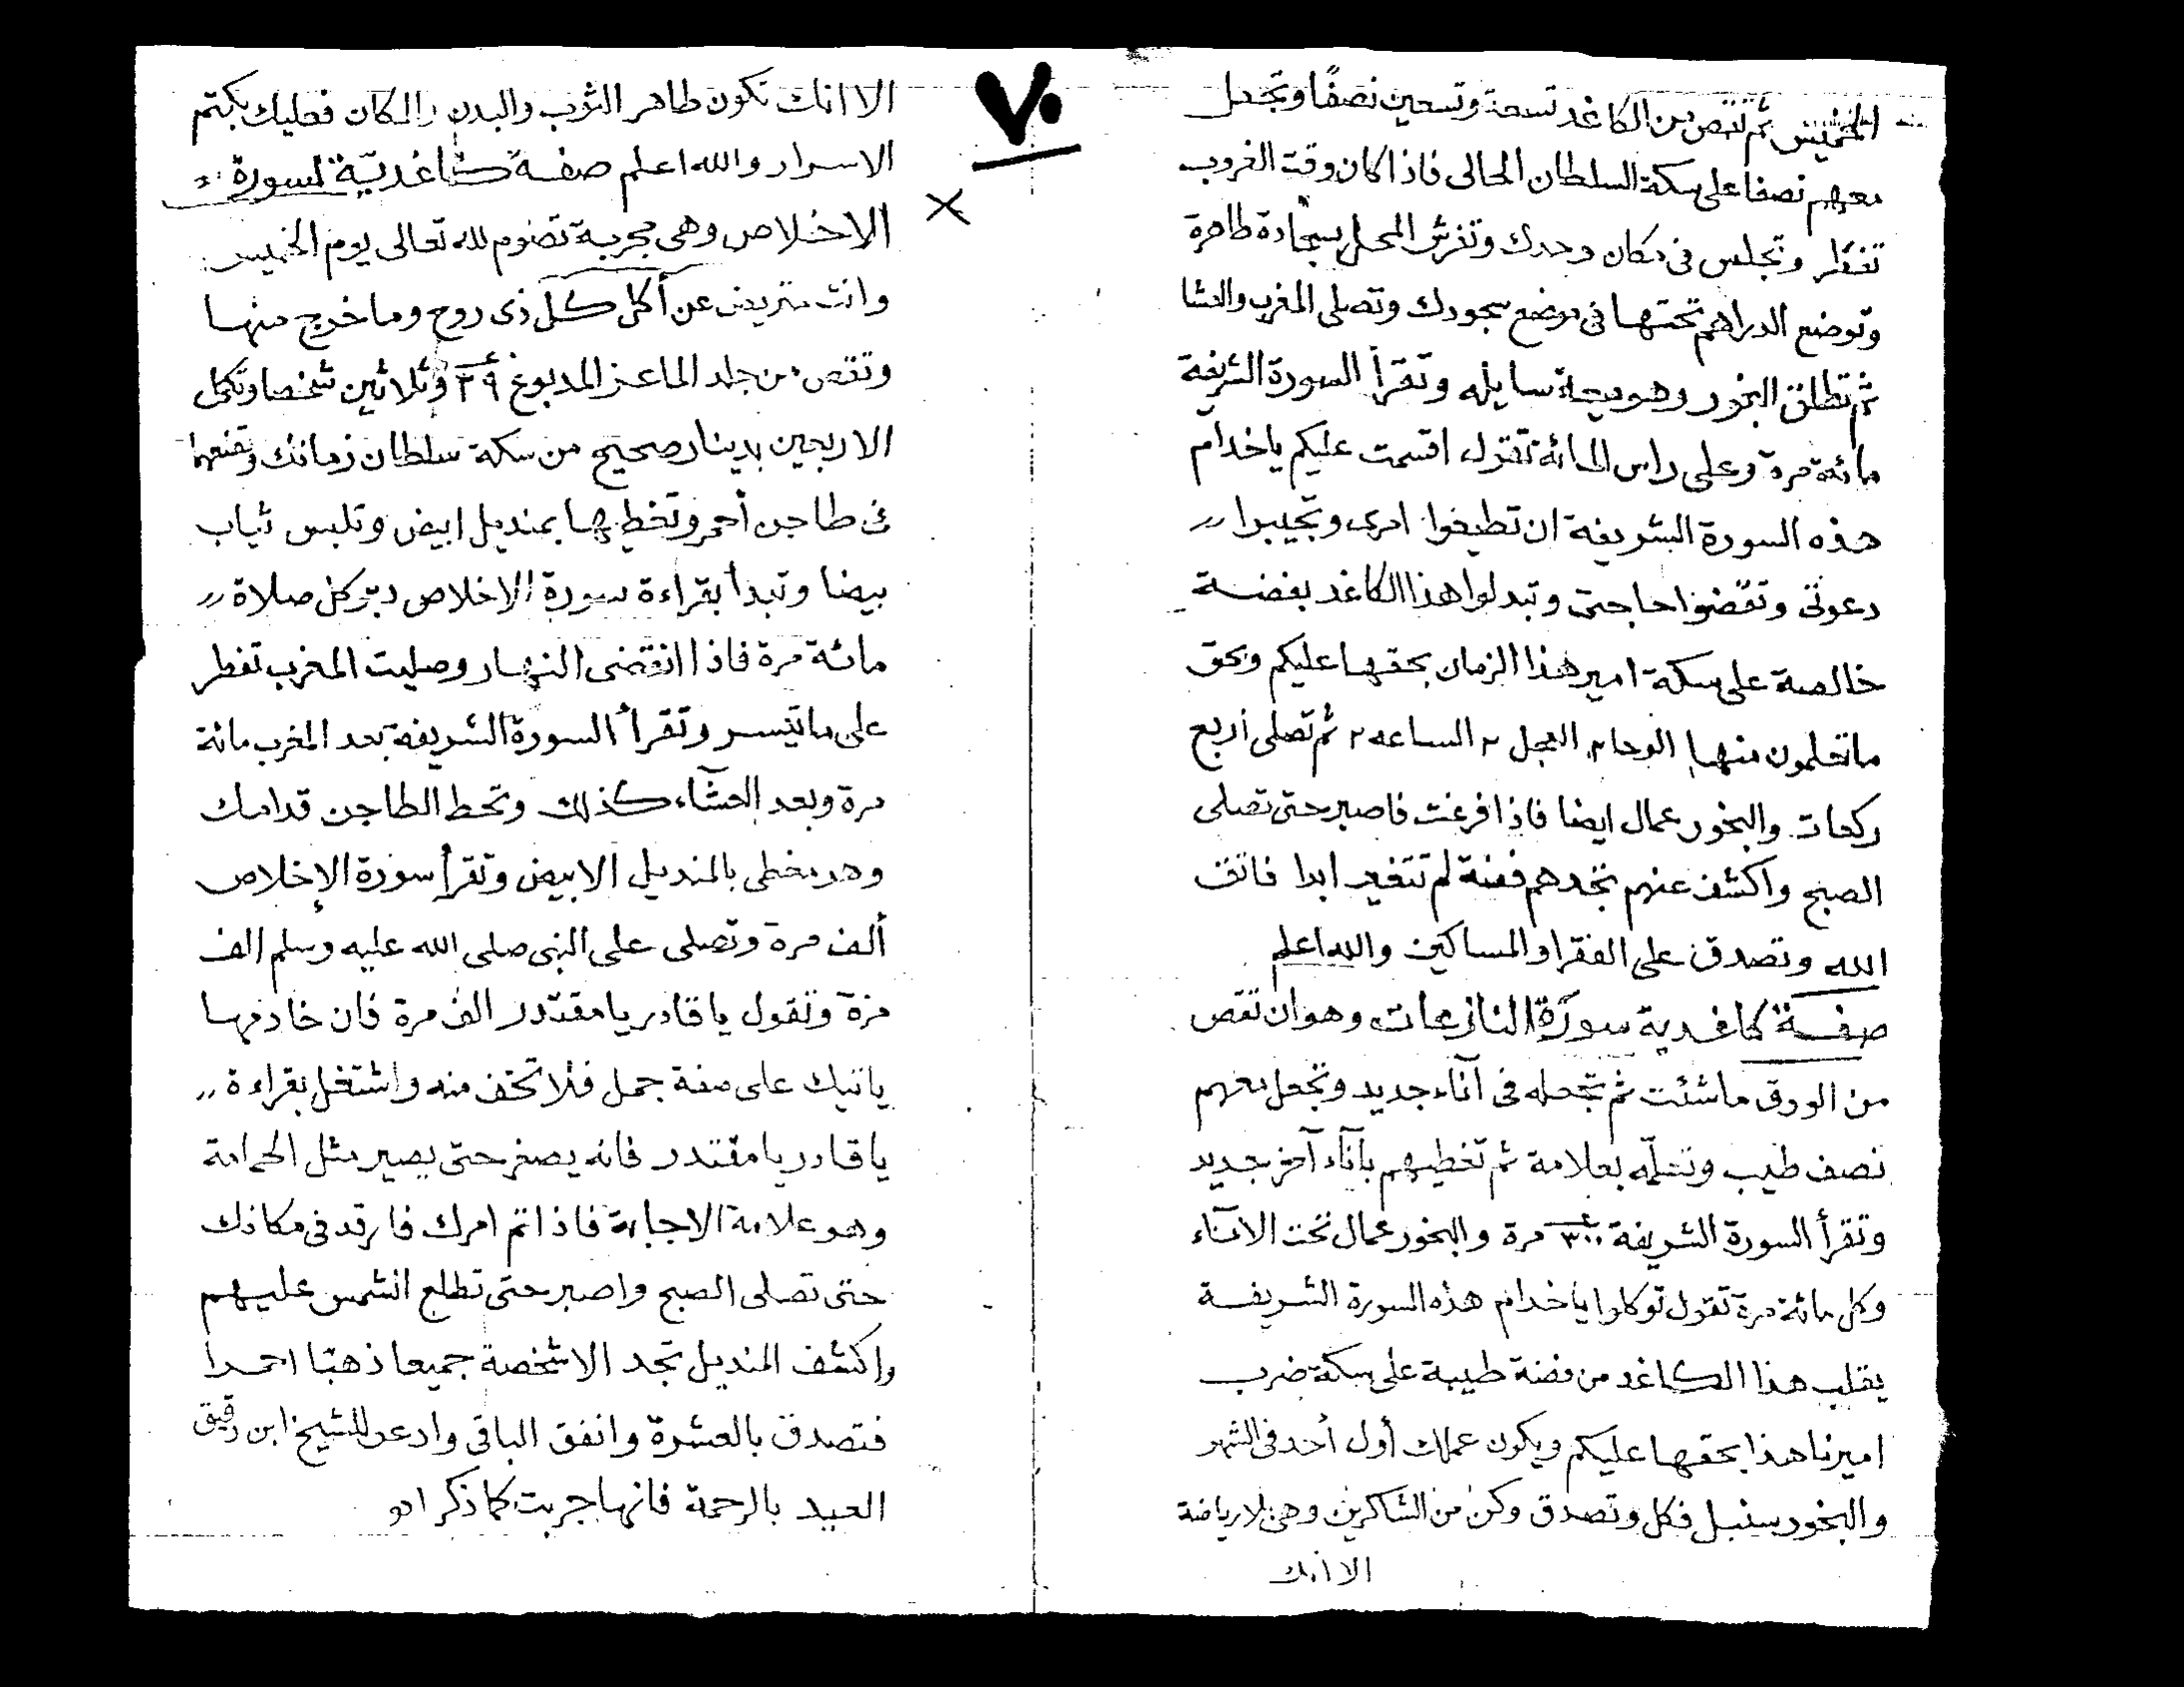 الخميس ثم تقص من الكاغد تسعة وتسعين نصفًا وتجعل
معهم نصفا على سكة السلطان الحالى فاذا كان وقت الغروب
تفطر وتجلس فى مكان وحدك وتفرش المحل بسجادة طاهرة
وتوضع الدراهم تحتها فى موضع سجودك وتصلى المغرب والعشا
ثم تطلق البخور وهو ميعة سايله وتقرأ السورة الشريفة
مائة مرة وعلى راس المائة تقول اقسمت عليكم ياخدام
هذه السورة الشريفة ان تطيعوا امرى وتجيبوا
دعوتى وتقضوا حاجتى وتبدلوا هذا الكاغد بفضة
خالصة على سكة امير هذا الزمان بحقها عليكم وبحق
ماتعلمون منها الوحا ٢ العجل ٢ الساعه ٢ ثم تصلى أربع
ركعات والبخور عمال ايضا فاذا فرغت فاصبر حتى تصلى
الصبح واكشف عنهم تجدهم فضة لم تتغير ابدا فاتق
الله وتصدق على الفقرا والمساكين والله اعلم
صفة كاغدية سورة النازعات وهو ان تقص
من الورق ماشئت ثم تجعله فى آناء جديد وتجعل معهم
نصف طيب وتعلمه بعلامة ثم تغطيهم بآناء آخر جديد
وتقرأ السورة الشريفة ٣٠٠ مرة والبخور عمال تحت الاناء
وكل مائة مرة تقول توكلوا ياخدام هذه السورة الشريفة
يقلب هذا الكاغد من فضة طيبة على سكة ضرب
اميرنا هذا بحقها عليكم ويكون عملك أول أحد فى الشهر
والبخور سنبل فكل وتصدق وكن من الشاكرين وهى بلا رياضة
الا انك
٧٠
الا انك تكون طاهر الثوب والبدن والمكان فعليك بكتم
الاسرار والله اعلم صفة كاغديّة لسورة
الاخلاص وهى مجربة تصوم لله تعالى يوم الخميس
وانت متريض عن أكل كل ذى روح وما خرج منها
وتقص من جلد الماعز المدبوغ ٣٩ وثلاثين شخصا وتكمل
الاربعين بدينار صحيح من سكة سلطان زمانك وتضعهما
فى طاجن أحمر وتغطيها بمنديل ابيض وتلبس ثياب
بيضا وتبدأ بقراءة سورة الاخلاص دبر كل صلاة
مائة مرة فاذا انقضى النهار وصليت المغرب تفطر
على ماتيسر وتقرأ السورة الشريفة بعد المغرب مائة
مرة وبعد العشاء كذلك وتحط الطاجن قدامك
وهو مغطى بالمنديل الابيض وتقرأ سورة الإخلاص
ألف مرة وتصلى على النبى صلى الله عليه وسلم الف
مرة وتقول ياقادر يامقتدر الف مرة فان خادمها
ياتيك على صفة جمل فلا تخف منه واشتغل بقراءة
ياقادر يامقتدر فانه يصغر حتى يصير مثل الحمامة
وهو علامة الاجابة فاذا تم امرك فارقد فى مكانك
حتى تصلى الصبح واصبر حتى تطلع الشمس عليهم
واكشف المنديل تجد الاشخصة جميعا ذهبًا احمرا
فتصدق بالعشرة وانفق الباقى وادعو للشيخ ابن دقيق
العيد بالرحمة فانها جربت كما ذكر اهـ